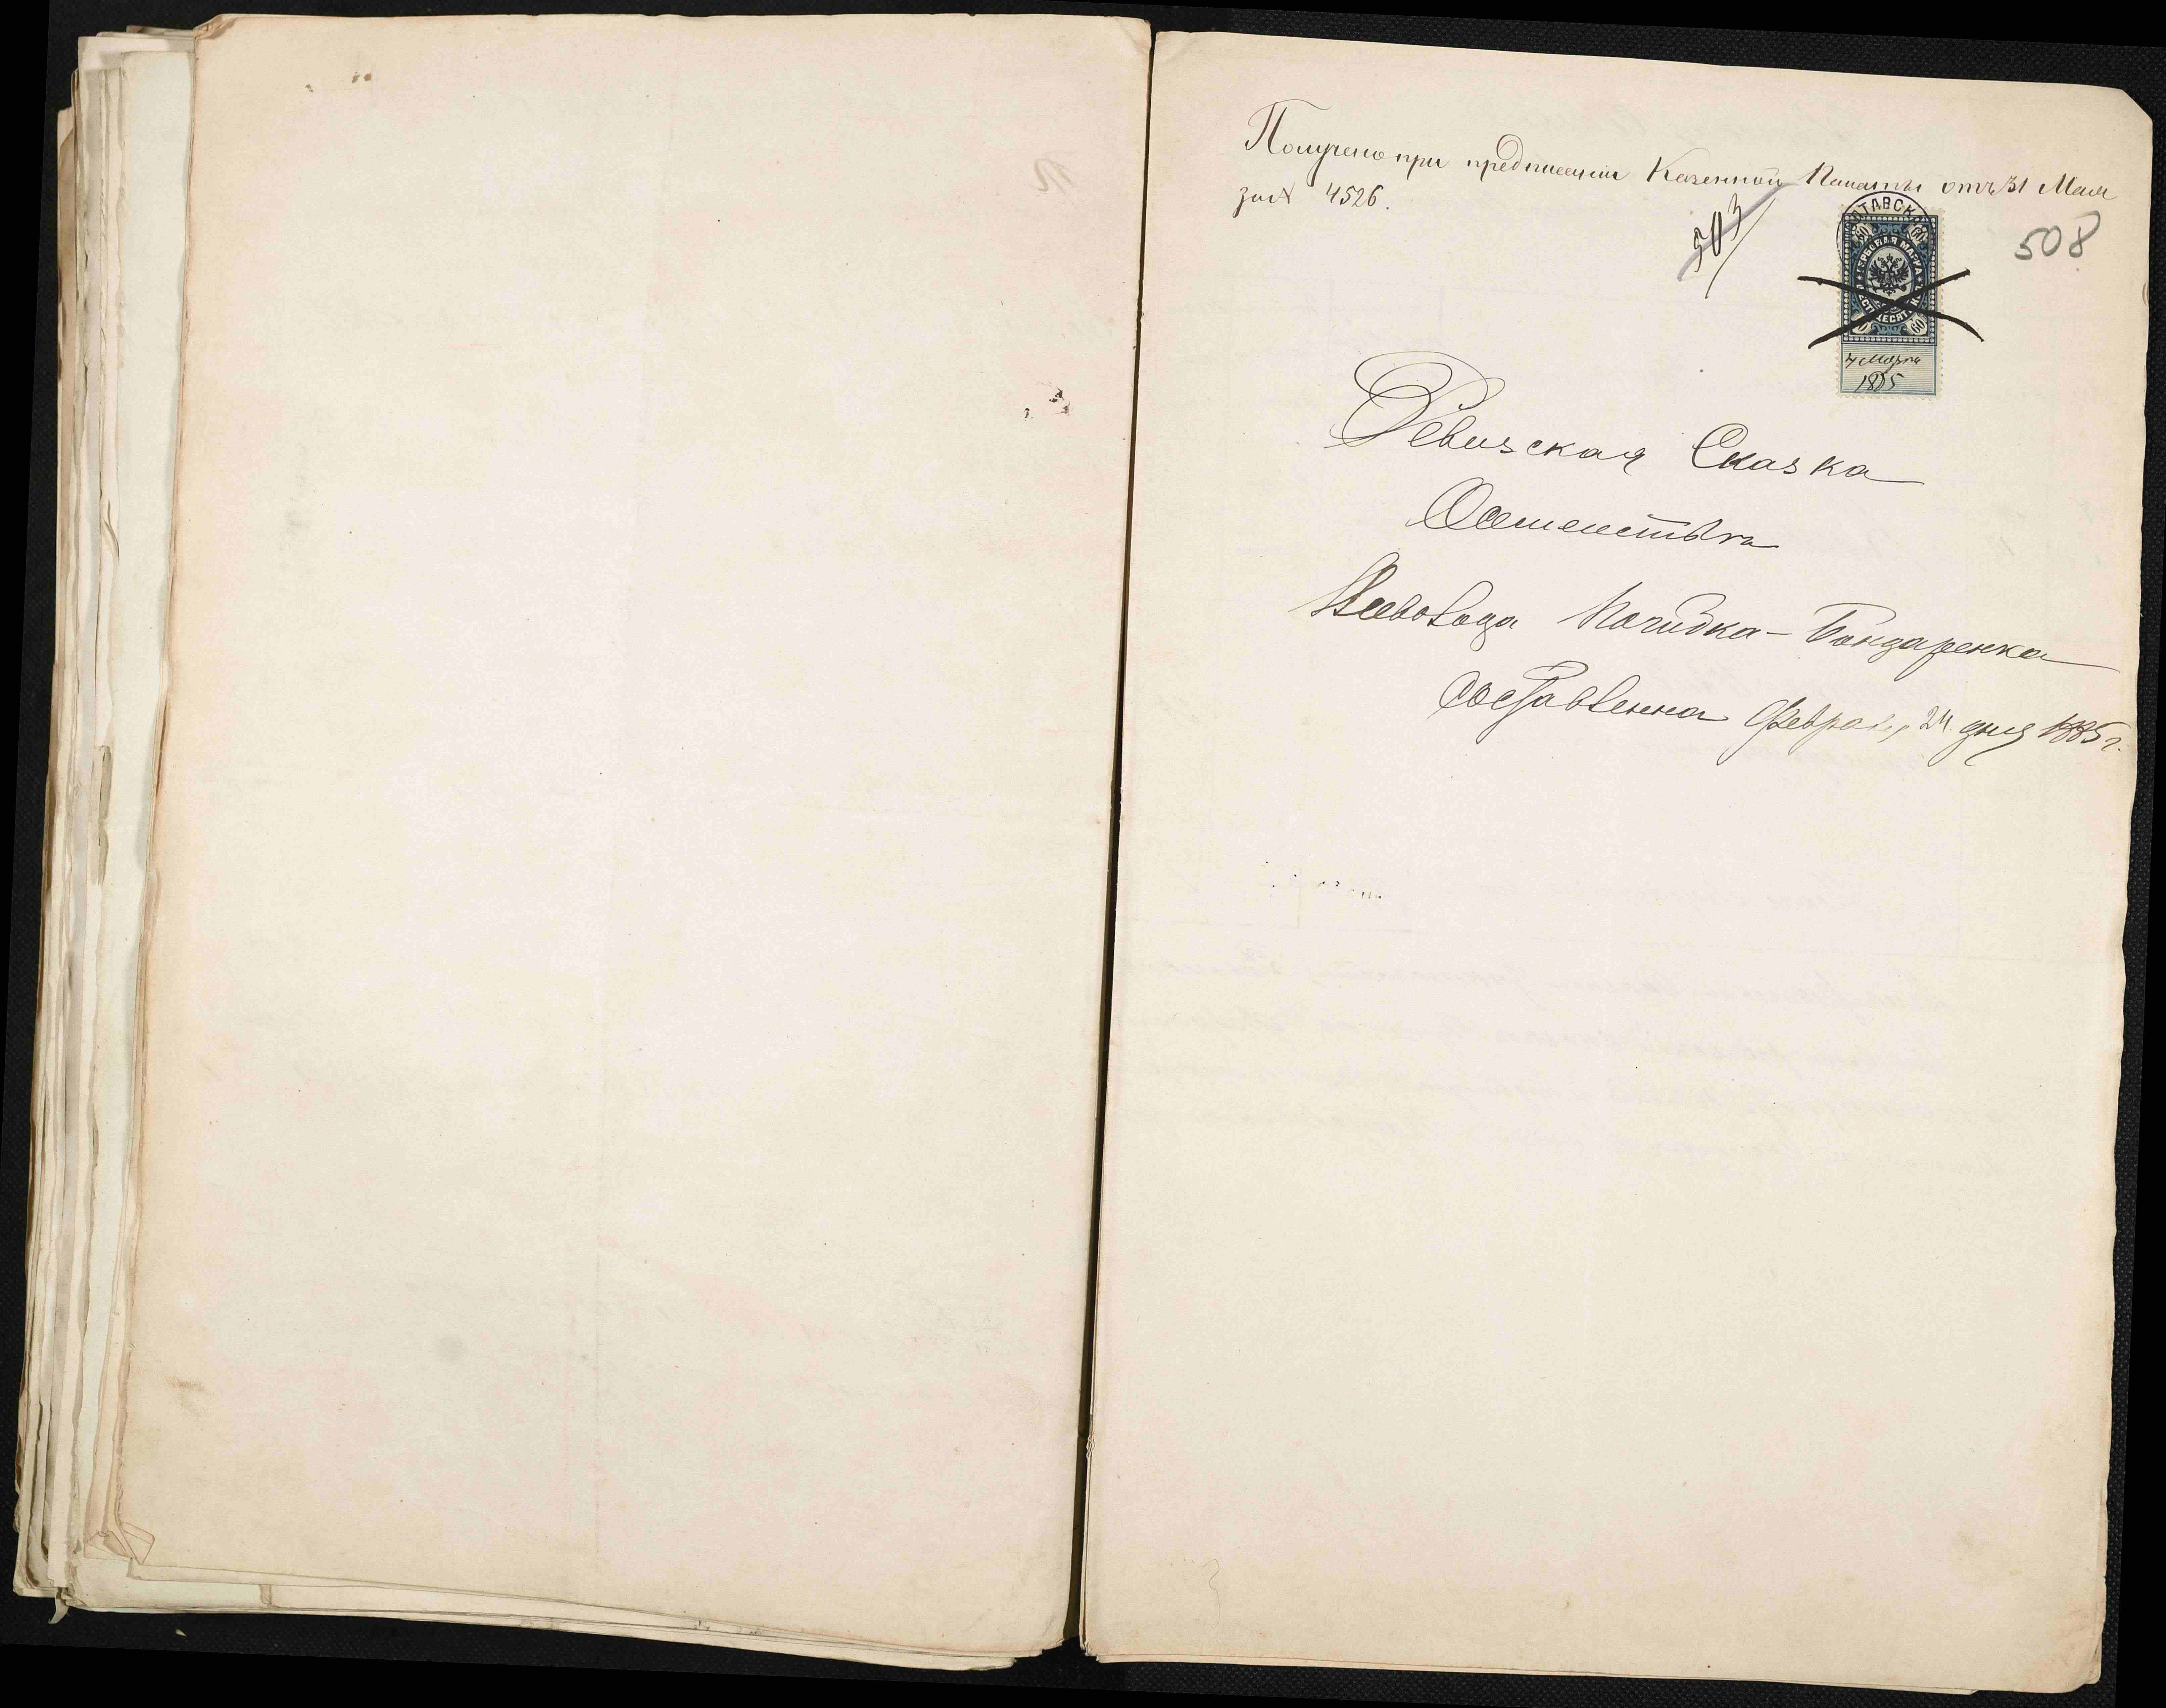 Получено при предписании Казенной Палаты отъ 31 Мая
за № 4526.
503
508
ПОЛТАВСК
ГЕРБОВАЯ МАРКА
60 60
60
4 Марта
1885
Ревизская Сказка
Семейства
Всеволода Бондаренка
Составленна Февраля 24 дня 1885 г.